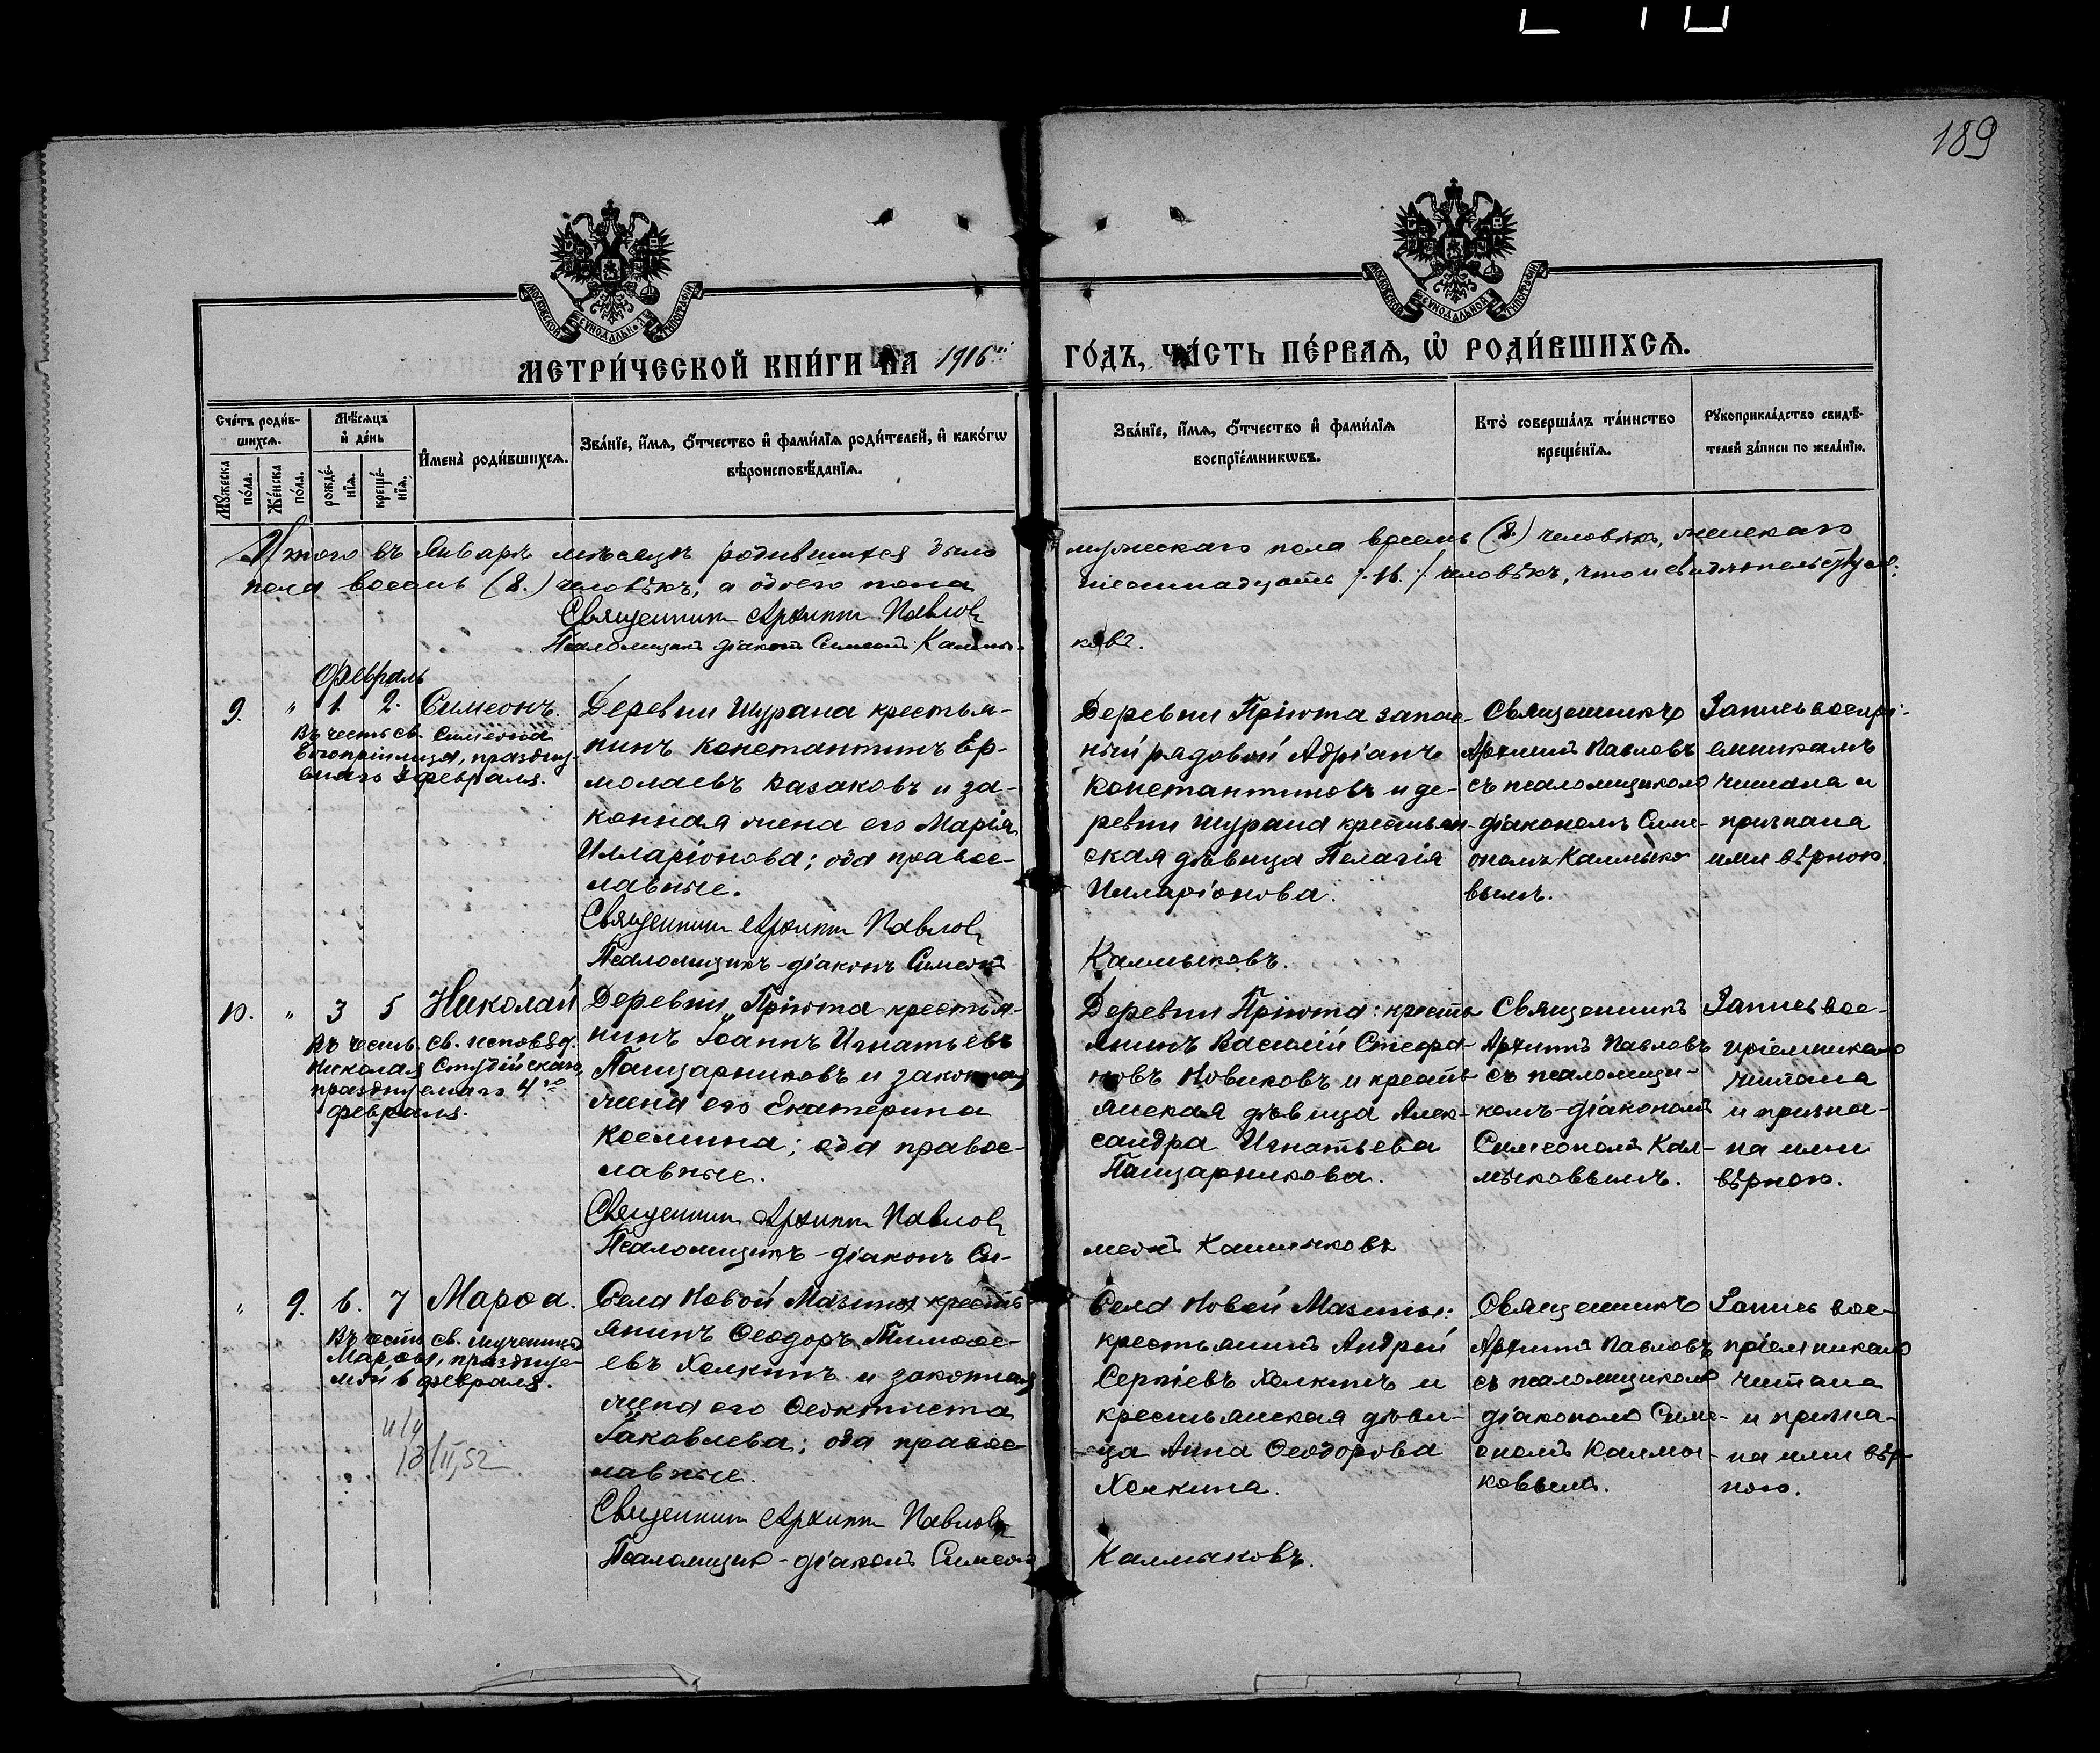 189
МОСКОВСКОЙ СѴНОДАЛЬНОЙ ТИПОГРАФІИ
МОСКОВСКОЙ СѴНОДАЛЬНОЙ ТИПОГРАФІИ
МЕТРИ́ЧЕСКОЙ КНИ́ГИ НА 1916й ГО́ДЪ, ЧА́СТЬ ПЕ́РВАѦ, Ѡ҆ РОДИ́ВШИХСѦ.
Сче́тъ роди́в-
шихсѧ.
Мꙋ́жеска
по́ла.
Же́нска
по́ла.
Мѣ́сѧцъ
и҆ де́нь
рожде́-
нїѧ.
креще́-
нїѧ.
И҆мена̀ роди́вшихсѧ.
Зва́нїе, и҆́мѧ, ѻ҆́тчество и҆ фами́лїѧ роди́телей, и҆ како́гѡ
вѣроисповѣ́данїѧ.
Зва́нїе, и҆́мѧ, ѻ҆́тчество и҆ фами́лїѧ
воспрїе́мникѡвъ.
Кто̀ соверша́лъ та́инство
креще́нїѧ.
Рꙋкоприкла́дство свидѣ́-
телей за́писи по жела́нїю.
Итого въ Январѣ мѣсяцѣ родившихся было мужескаго пола восемь (8.) человѣкъ, женскаго
пола восемь (8.) человѣкъ, а обоего пола шестнадцать /.16./ человѣкъ, что и свидѣтельствуемъ:
Священникъ Архипъ Павловъ
Псаломщикъ діаконъ Симеонъ Калмы-
ковъ.
Февраль
9. " 1. 2. Симеонъ.
Въ честь св. Симеона
Богопріимца, праздну-
емаго 3 февраля.
Деревни Шурана крестья-
нинъ Константинъ Ер-
молаевъ Казаковъ и за-
конная жена его Марія
Илларіонова; оба правос-
лавные.
Священникъ Архипъ Павловъ
Псаломщикъ-діаконъ Симеонъ
Деревни Пріюта запас-
ный рядовой Адріанъ
Константиновъ и де-
ревни Шурана крестьян-
ская дѣвица Пелагія
Илларіонова.
Калмыковъ.
Священникъ
Архипъ Павловъ
съ псаломщикомъ
діакономъ Симе-
ономъ Калмыко-
вымъ.
Запись воспрі-
емникамъ
читана и
признана
ими вѣрною
10. " 3 5 Николай
Въ честь св. исповѣд.
Николая Студійскаго,
празднуемаго 4го
февраля.
Деревни Пріюта крестья-
нинъ Іоаннъ Игнатьевъ
Панцарниковъ и законная
жена его Екатерина
Космина; оба правос-
лавные.
Священникъ Архипъ Павловъ
Псаломщикъ-діаконъ Си-
Деревни Пріюта: кресть-
янинъ Василій Стефа-
новъ Новиковъ и кресть-
янская дѣвица Алек-
сандра Игнатьева
Панцарникова.
меонъ Калмыковъ
Священникъ
Архипъ Павловъ
съ псаломщи-
комъ-діакономъ
Симеономъ Кал-
мыковымъ.
Запись вос-
пріемникамъ
читана
и призна-
на ими
вѣрною.
" 9. 6. 7 Марѳа.
Въ честь св. мученицы
Марѳы, праздну-
мой 6 февраля.
13/II,52
Села Новой Мазины кресть-
янинъ Ѳеодоръ Тимоѳе-
евъ Хелкинъ и законная
жена его Ѳеоктиста
Іаковлева; оба правос-
лавные.
Священникъ Архипъ Павловъ
Псаломщикъ-діаконъ Симеонъ
Села Новой Мазины:
крестьянинъ Андрей
Сергіевъ Хелкинъ и
крестьянская дѣви-
ца Анна Ѳеодорова
Хелкина.
Калмыковъ.
Священникъ
Архипъ Павловъ
съ псаломщикомъ
діакономъ Симе-
ономъ Калмы-
ковымъ.
Запись вос-
пріемникамъ
читана
и призна-
на ими вѣр-
ною.